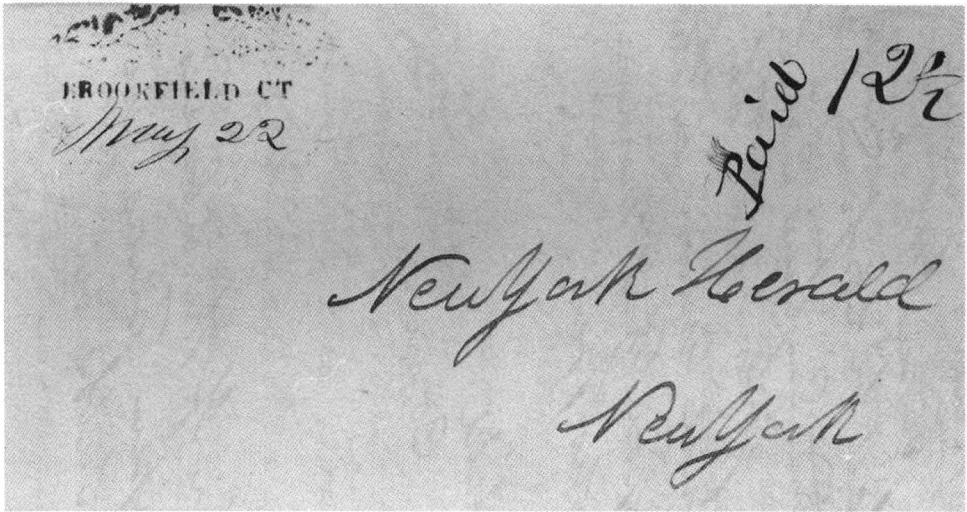 BROOKFIELD CT
May 22
Paid 12½
New York Herald
New York